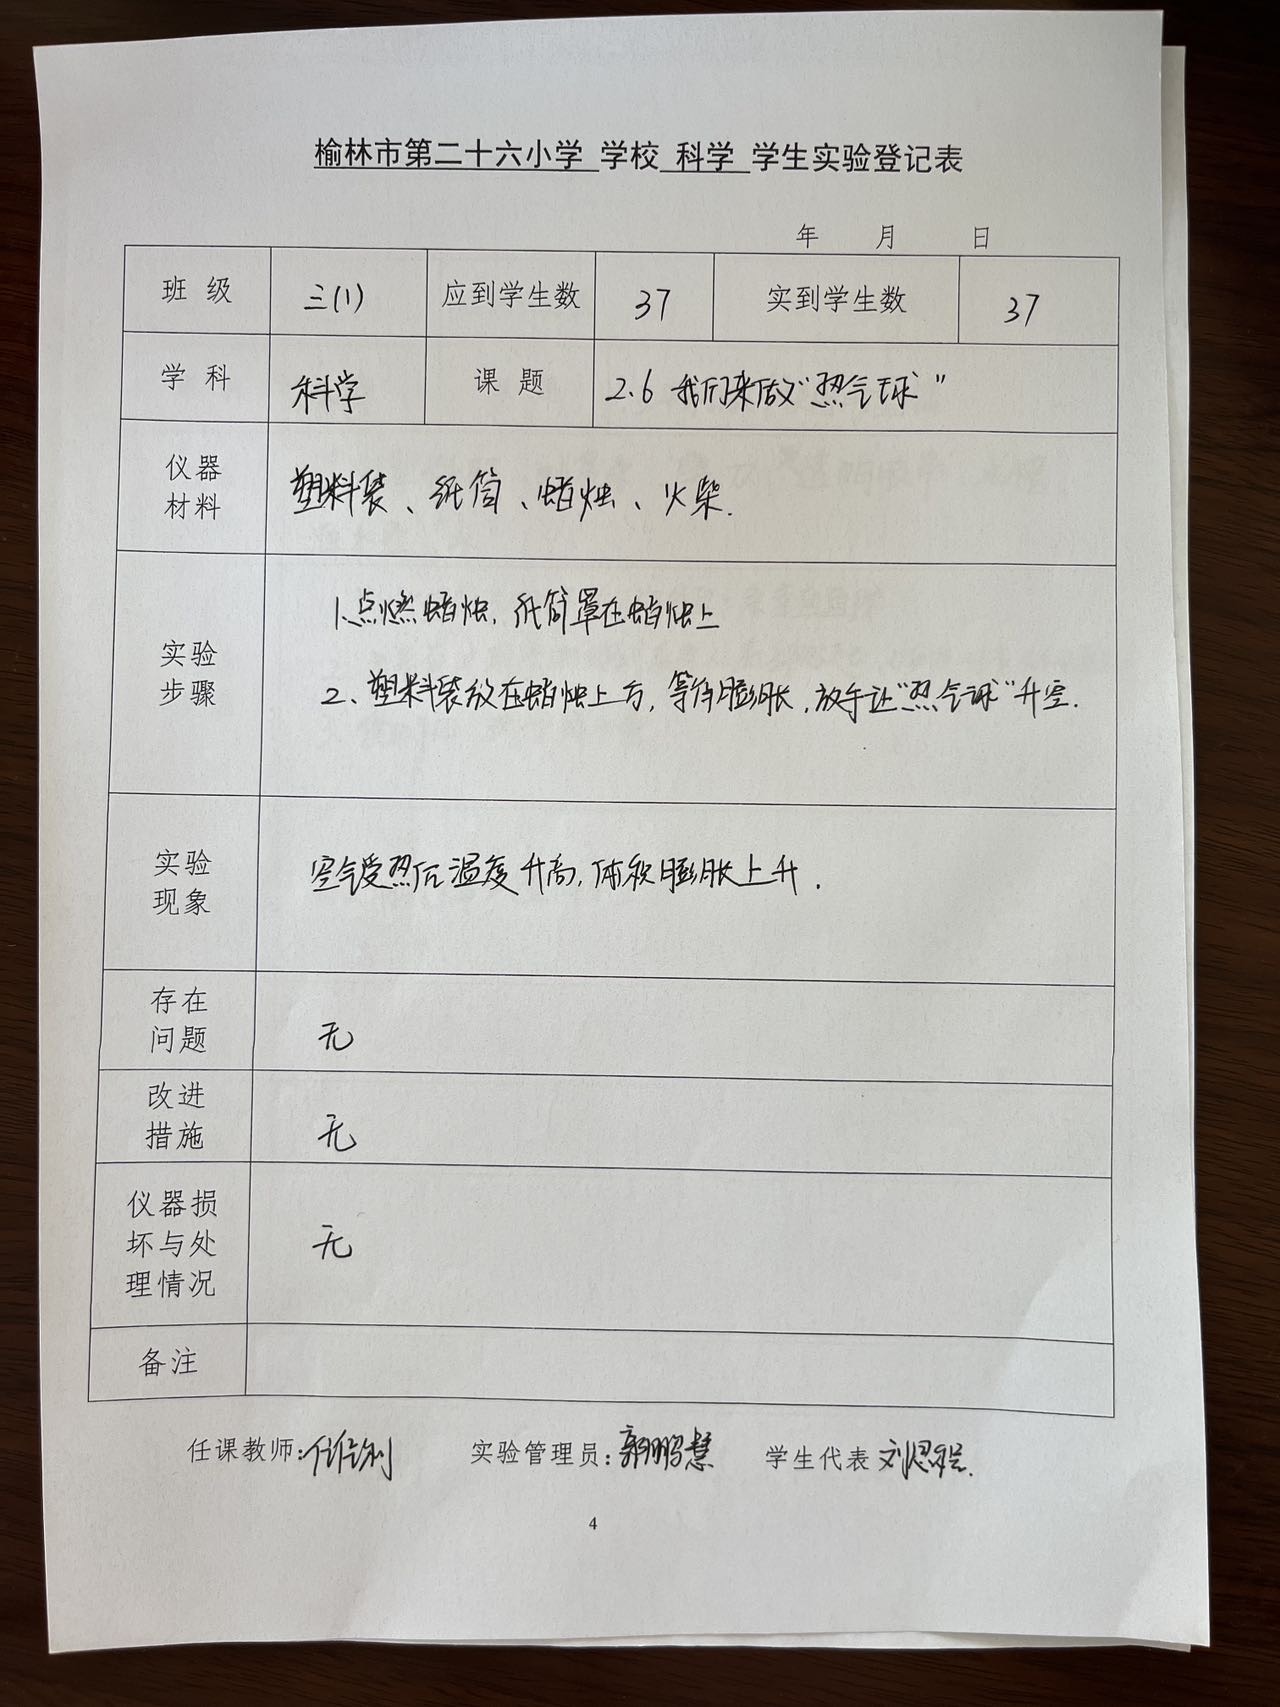 榆林市第二十六小学 学校 科学 学生实验登记表
年 月 日
班 级 三(1) 应到学生数 37 实到学生数 37
学 科 科学 课 题 2.6 我们来做"热气球"
仪器
材料
塑料装、纸筒、蜡烛、火柴.
实验
步骤
1.点燃蜡烛,纸筒罩在蜡烛上
2、塑料装放在蜡烛上方,等待膨胀,放手让"热气球"升空.
实验
现象
空气受热后温度升高,体积膨胀上升.
存在
问题
无
改进
措施
无
仪器损
坏与处
理情况
无
备注
任课教师: 实验管理员:郭鹏慧 学生代表 刘思
4